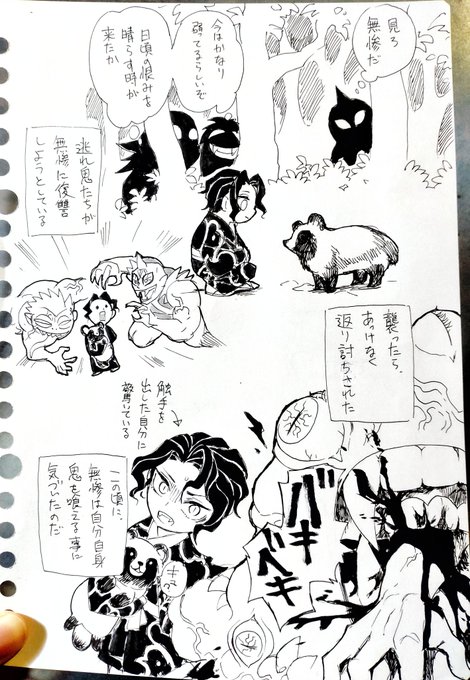 見ろ
無惨だ
今はかなり
弱ってるらしいぞ
日頃の恨みを
晴らす時が
来たか
逃れ鬼たちが
無惨に復讐
しようとしている
襲ったら、
あっけなく
返り討ちされた
触手を
出した自分に
驚いている
バキ
ベキ
この頃に、
無惨は自分自身
鬼を喰える事に
気づいたのだ